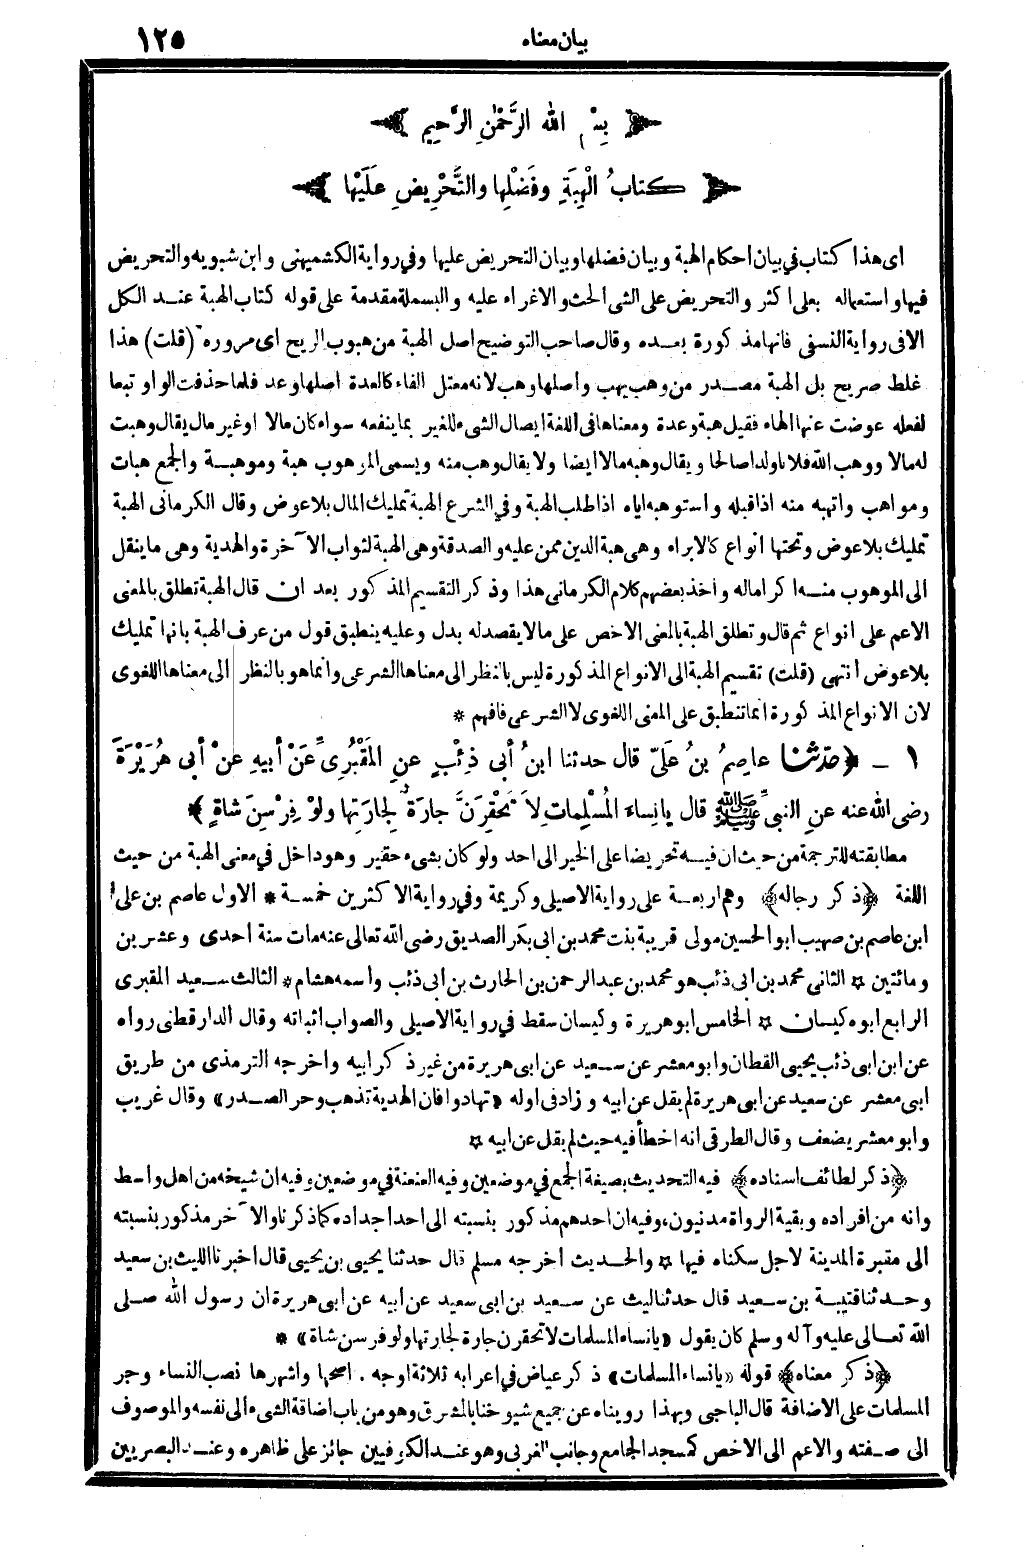 بيان معناه ١٢٥
بِسْمِ اللهِ الرَّحْمٰنِ الرَّحِيمِ
كتابُ الْهِبَةِ وفَضْلِها والتَّحْرِيضِ عَلَيْها
اى هذا كتاب فى بيان احكام الهبة وبيان فضلها وبيان التحريض عليها وفى رواية الكشميهنى وابن شبويه والتحريض
فيها واستعماله بعلى اكثر والتحريض على الشى الحث والاغراء عليه والبسملة مقدمة على قوله كتاب الهبة عند الكل
الا فى رواية النسفى فانها مذكورة بعده وقال صاحب التوضيح اصل الهبة من هبوب الريح اى مروره (قلت) هذا
غلط صريح بل الهبة مصدر من وهب يهب واصلها وهب لانه معتل الفاء كالعدة اصلها وعد فلما حذفت الواو تبعا
لفعله عوضت عنها الهاء فقيل هبة وعدة ومعناها فى اللغة ايصال الشىء للغير بما ينفعه سواء كان مالا او غير مال يقال وهبت
له مالا ووهب الله فلانا ولدا صالحا ويقال وهبه مالا ايضا ولا يقال وهب منه ويسمى الموهوب هبة وموهبة والجمع هبات
ومواهب واتهبه منه اذا قبله واستوهبه اياه اذا طلب الهبة وفى الشرع الهبة تمليك المال بلا عوض وقال الكرمانى الهبة
تمليك بلا عوض وتحتها انواع كالابراء وهى هبة الدين ممن عليه والصدقة وهى الهبة لثواب الآخرة والهدية وهى ما ينقل
الى الموهوب منه اكراما له واخذ بعضهم كلام الكرمانى هذا وذكر التقسيم المذكور بعد ان قال الهبة تطلق بالمعنى
الاعم على انواع ثم قال وتطلق الهبة بالمعنى الاخص على مالا يقصد له بدل وعليه ينطبق قول من عرف الهبة بانها تمليك
بلا عوض انتهى (قلت) تقسيم الهبة الى الانواع المذكورة ليس بالنظر الى معناها الشرعى وانما هو بالنظر الى معناها اللغوى
لان الانواع المذكورة انما تنطبق على المعنى اللغوى لا الشرعى فافهم *
١ ـ ﴿حدّثنا عاصِمُ بنُ عَلىّ قال حدثنا ابنُ أبى ذِئْبٍ عنِ المَقْبُرِىِّ عَنْ أبيهِ عنْ أبى هُرَيْرَةَ
رضى الله عنه عنِ النبىِّ ﷺ قال يا نِساءَ المُسْلِماتِ لاَ تَحْقِرَنَّ جارَةٌ لِجارَتِها ولوْ فِرْسِنَ شاةٍ﴾
مطابقته للترجمة من حيث ان فيه تحريضا على الخير الى احد ولو كان بشىء حقير وهو داخل فى معنى الهبة من حيث
اللغة ﴿ذكر رجاله﴾ وهم اربعة على رواية الاصيلى وكريمة وفى رواية الاكثرين خمسة * الاول عاصم بن على
ابن عاصم بن صهيب ابو الحسين مولى قريبة بنت محمد بن ابى بكر الصديق رضى الله تعالى عنه مات سنة احدى وعشرين
ومائتين * الثانى محمد بن ابى ذئب هو محمد بن عبد الرحمن بن الحارث بن ابى ذئب واسمه هشام * الثالث سعيد المقبرى
الرابع ابوه كيسان * الخامس ابو هريرة وكيسان سقط فى رواية الاصيلى والصواب اثباته وقال الدارقطنى رواه
عن ابن ابى ذئب يحيى القطان وابو معشر عن سعيد عن ابى هريرة من غير ذكر ابيه واخرجه الترمذى من طريق
ابى معشر عن سعيد عن ابى هريرة لم يقل عن ابيه وزاد فى اوله «تهادوا فان الهدية تذهب وحر الصدر» وقال غريب
وابو معشر يضعف وقال الطرقى انه اخطأ فيه حيث لم يقل عن ابيه *
﴿ذكر لطائف اسناده﴾ فيه التحديث بصيغة الجمع فى موضعين وفيه العنعنة فى موضعين وفيه ان شيخه من اهل واسط
وانه من افراده وبقية الرواة مدنيون، وفيه ان احدهم مذكور بنسبته الى احد اجداده كما ذكرنا والآخر مذكور بنسبته
الى مقبرة المدينة لاجل سكناه فيها * والحديث اخرجه مسلم قال حدثنا يحيى بن يحيى قال اخبرنا الليث بن سعيد
وحدثنا قتيبة بن سعيد قال حدثنا ليث عن سعيد بن ابى سعيد عن ابيه عن ابى هريرة ان رسول الله صلى
الله تعالى عليه وآله وسلم كان يقول «يا نساء المسلمات لا تحقرن جارة لجارتها ولو فرسن شاة» *
﴿ذكر معناه﴾ قوله «يا نساء المسلمات» ذكر عياض فى اعرابه ثلاثة اوجه . اصحها واشهرها نصب النساء وجر
المسلمات على الاضافة قال الباجى وبهذا رويناه عن جميع شيوخنا بالمشرق وهو من باب اضافة الشىء الى نفسه والموصوف
الى صفته والاعم الى الاخص كمسجد الجامع وجانب الغربى وهو عند الكوفيين جائز على ظاهره وعند البصريين